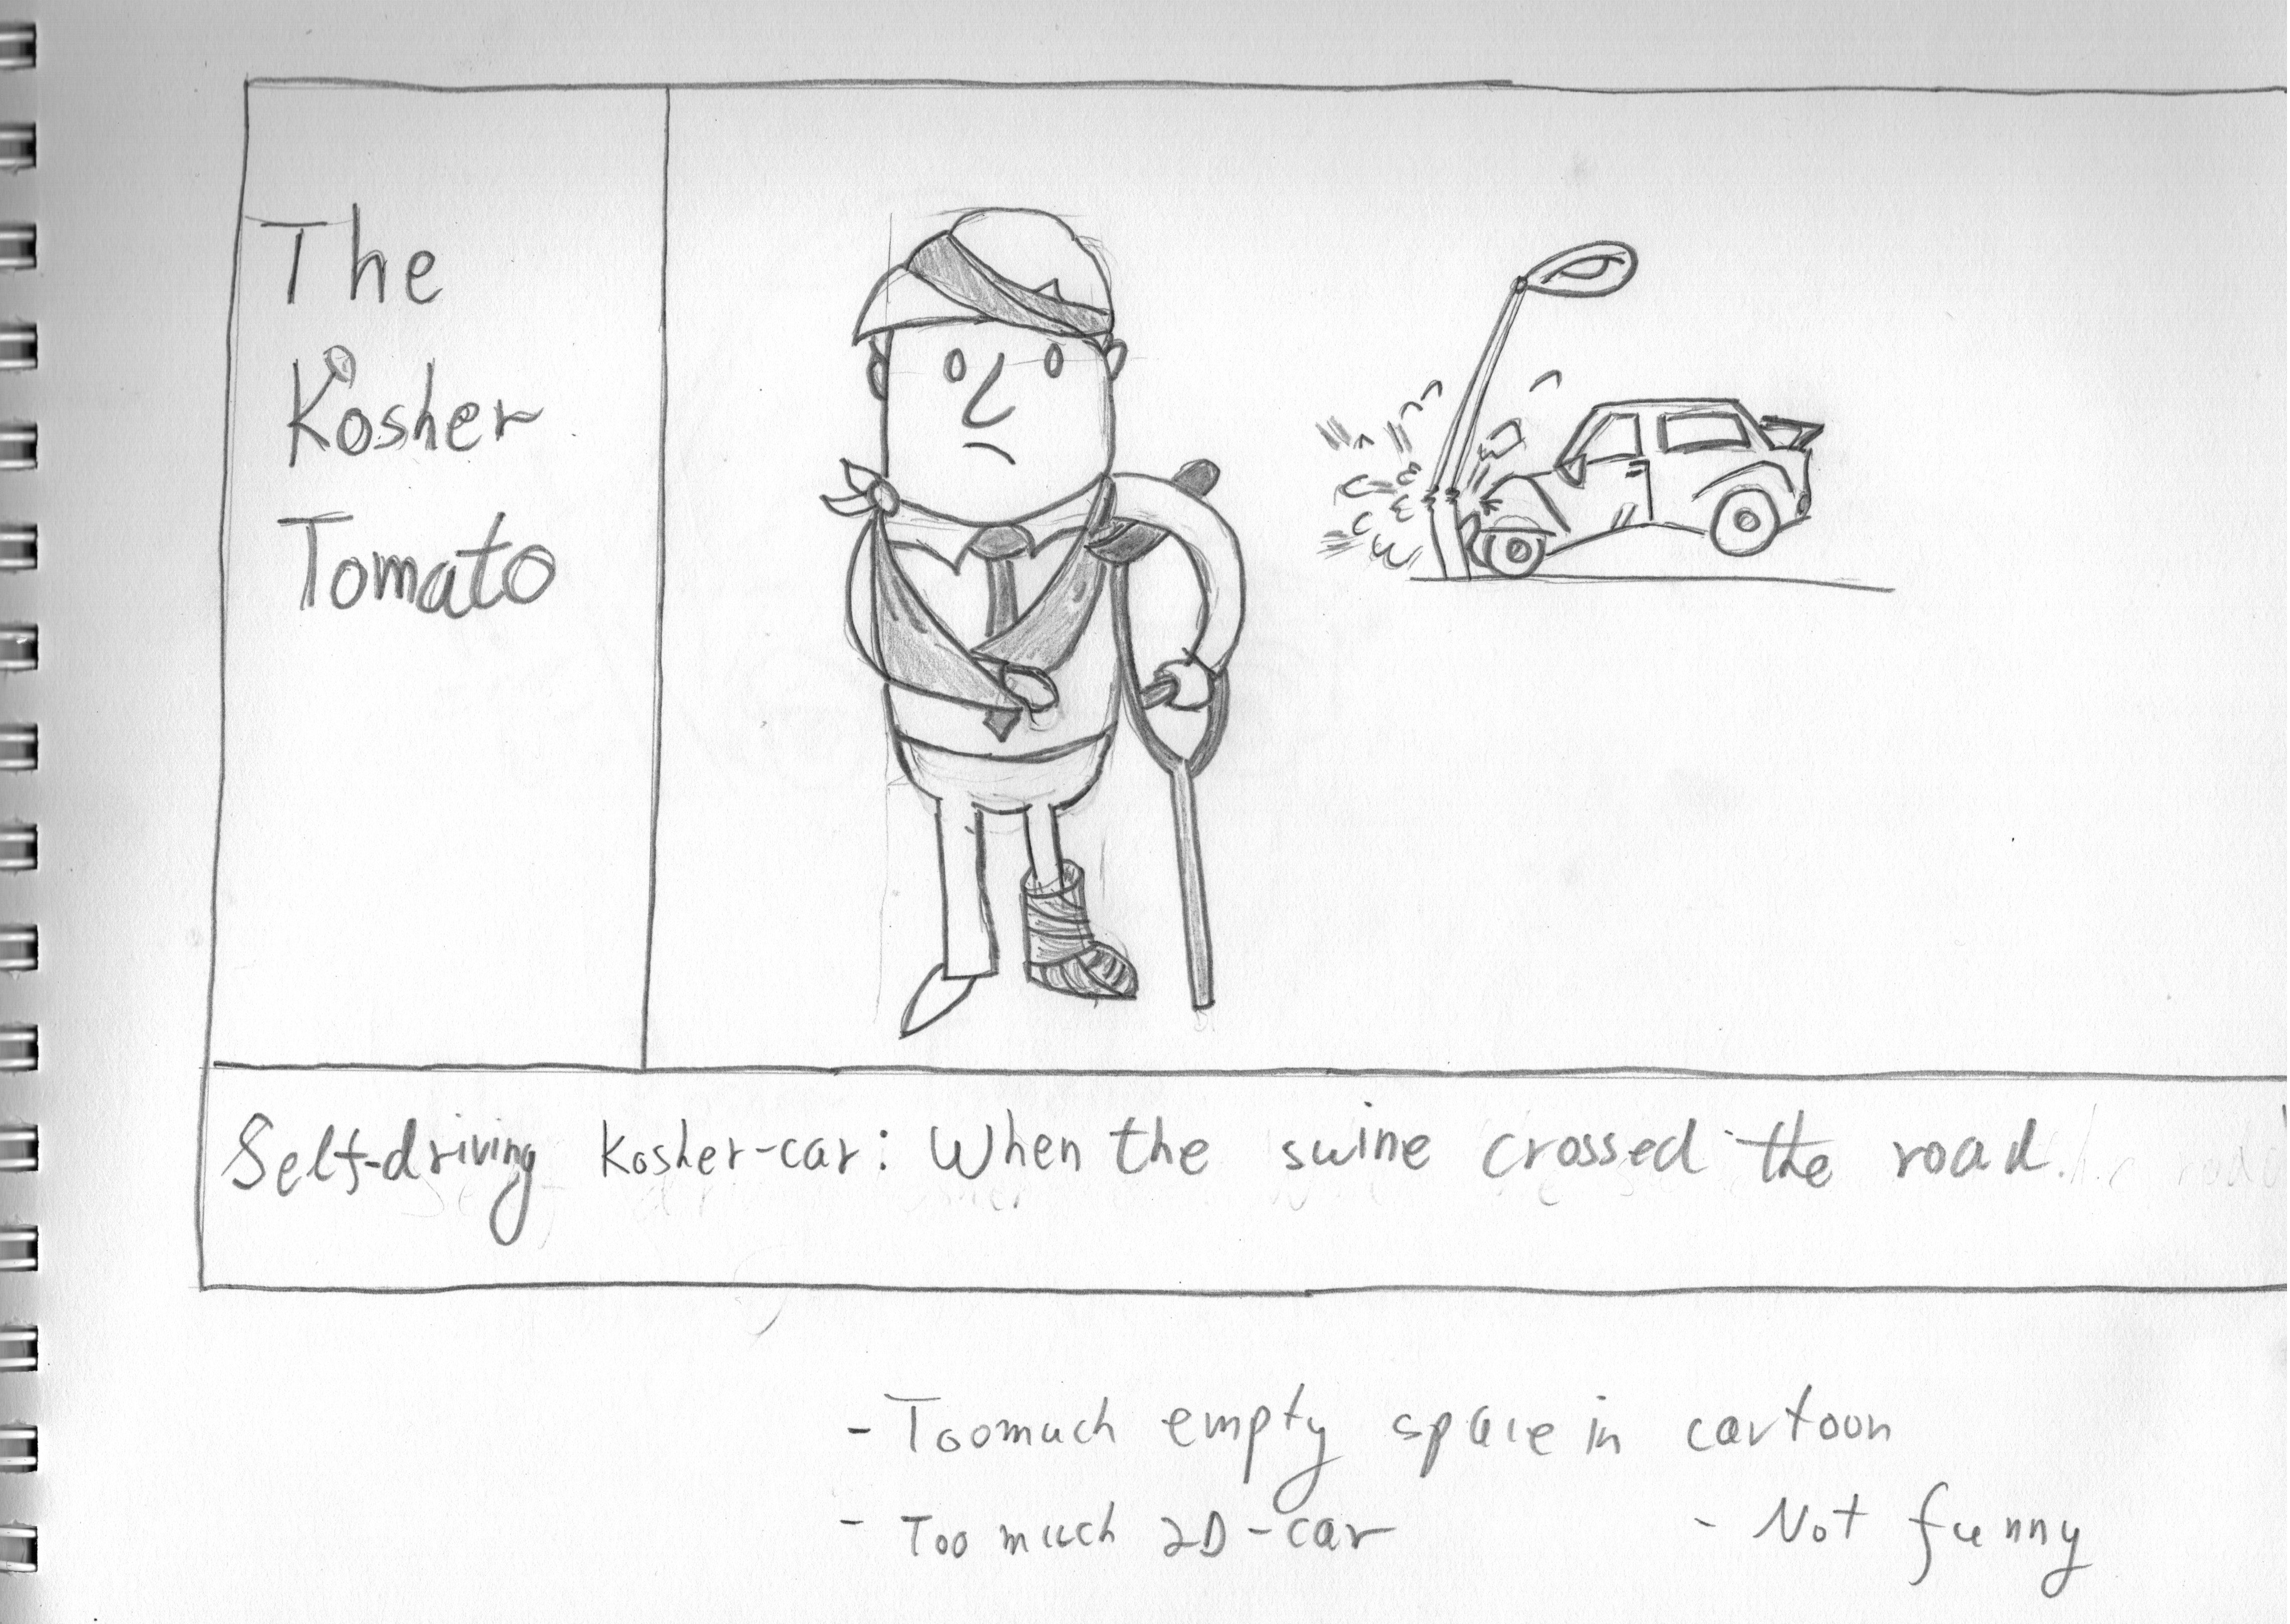 The
Kosher
Tomato
Self-driving Kosher-car: When the swine crossed the road.
- Toomuch empty space in cartoon
- Too much 2D-car - Not funny